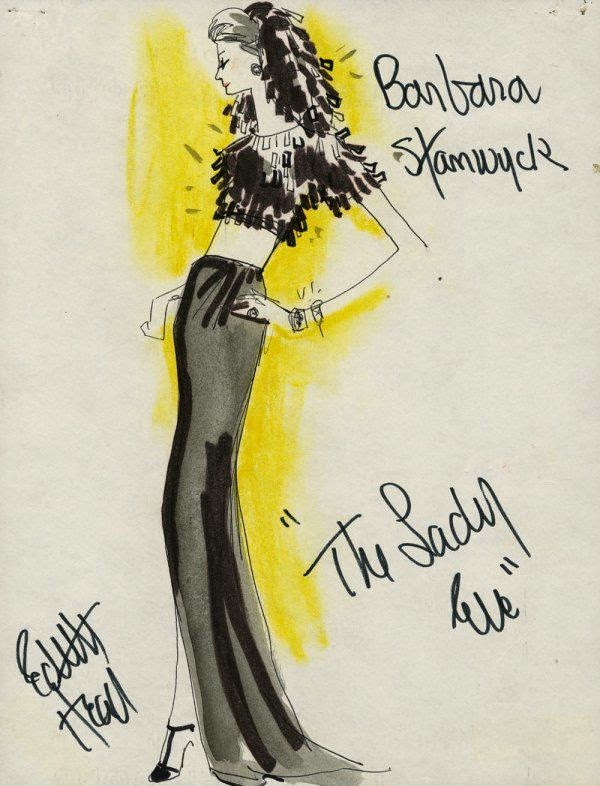 Barbara
Stanwyck
"The Lady
Eve"
Edith
Head